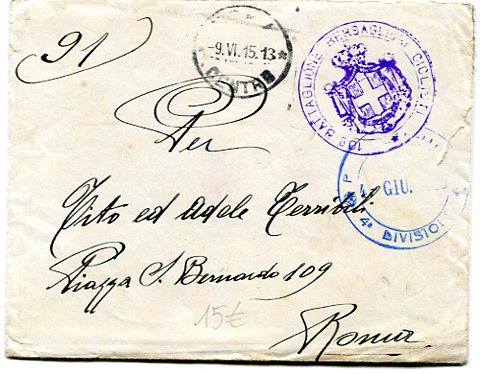 91
-9.VI.15.13
CENTRO
10º BATTAGLIONE BERSAGLIERI CICLISTI
GIU.
4ª DIVISION
Per
Tito ed Adele Terribili
Piazza S. Bernardo 109
15€
Roma